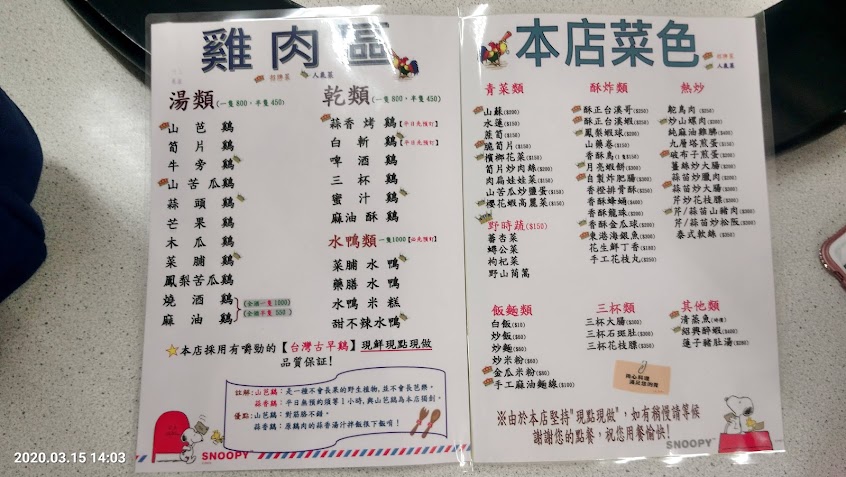 雞肉區
招牌菜
人氣菜
湯類(一隻800,半隻450)
山芭雞
筍片雞
牛旁雞
山苦瓜雞
蒜頭雞
芒果雞
木瓜雞
菜脯雞
鳳梨苦瓜雞
燒酒雞
麻油雞
(全酒一隻1000)
(全酒半隻550)
乾類(一隻800,半隻450)
蒜香烤雞【平日先預訂】
白斬雞【平日先預訂】
啤酒雞
三杯雞
蜜汁雞
麻油酥雞
水鴨類一隻1000【必先預訂】
菜脯水鴨
藥膳水鴨
水鴨米糕
甜不辣水鴨
本店採用有嚼勁的【台灣古早雞】現鮮現點現做
品質保証!
註解:山芭雞:是一種不會長果的野生植物,並不會芭樂。
蒜香雞:平日無預約須等1小時,與山芭雞為本店獨創。
優點:山芭雞:對筋胳不錯。
蒜香雞:原雞肉的蒜香湯汁拌飯很下飯唷!
SNOOPY
本店菜色
招牌菜
人氣菜
青菜類
山蘇($200)
水蓮($150)
菜筍($150)
脆筍片($150)
檳榔花菜($150)
筍片炒肉絲($200)
肉扁娃娃菜($150)
山苦瓜炒鹽蛋($150)
櫻花蝦高麗菜($150)
野時蔬($150)
蕃杏菜
蟳公菜
枸杞菜
野山茼蒿
酥炸類
酥正台溪哥($250)
酥正台溪蝦($250)
鳳梨蝦球($200)
山藥卷($150)
香酥鳥(1隻$150)
月亮蝦餅($300)
自製炸肥腸($300)
香橙排骨酥($250)
香酥蜂蛹($400)
香酥龍珠($200)
香酥金瓜球($200)
東港海銀魚($300)
花生鮮丁香($180)
手工花枝丸($250)
熱炒
鴕鳥肉($250)
炒山螺肉($300)
純麻油雞腅($400)
九層塔煎蛋($150)
破布子煎蛋($200)
薑絲炒大腸($200)
蒜苗炒臘肉($250)
蒜苗炒大腸($200)
芹炒花枝膘($300)
芹/蒜苗山豬肉($200)
芹/蒜苗炒松阪($300)
泰式軟絲($300)
飯麵類
白飯($10)
炒飯($80)
炒麵($80)
炒米粉($80)
金瓜米粉($80)
手工麻油麵線($100)
三杯類
三杯大腸($300)
三杯石斑肚($300)
三杯花枝膘($350)
其他類
清蒸魚(時價)
紹興醉蝦($400)
蓮子豬肚湯($350)
用心料理
滿足您測胃
※由於本店堅持"現點現做",如有稍慢請等候
謝謝您的點餐,祝您用餐愉快!
SNOOPY
2020.03.15 14:03